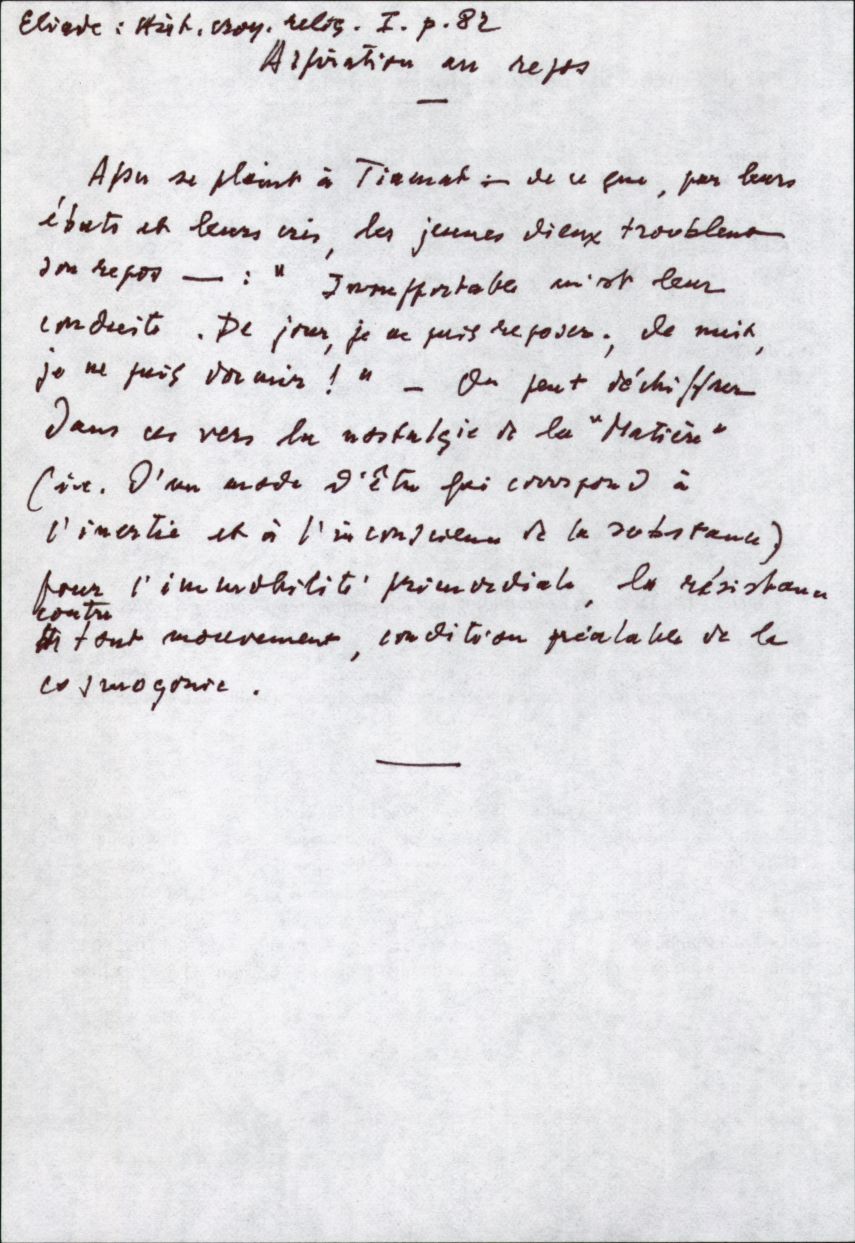 Eliade : Hist. croy. relig. I. p. 82
Aspiration au repos
—
Apsu se plaint à Tiamat — de ce que, par leurs
ébats et leurs cris, les jeunes dieux troublent
son repos — : " Insupportable m'est leur
conduite. De jour, je ne puis reposer ; de nuit,
je ne puis dormir ! " — On peut déchiffrer
dans ces vers la nostalgie de la "Matière"
(i.e. d'un mode d'être qui correspond à
l'inertie et à l'inconscience de la substance)
pour l'immobilité primordiale, la résistance
contre
tout mouvement, condition préalable de la
cosmogonie.